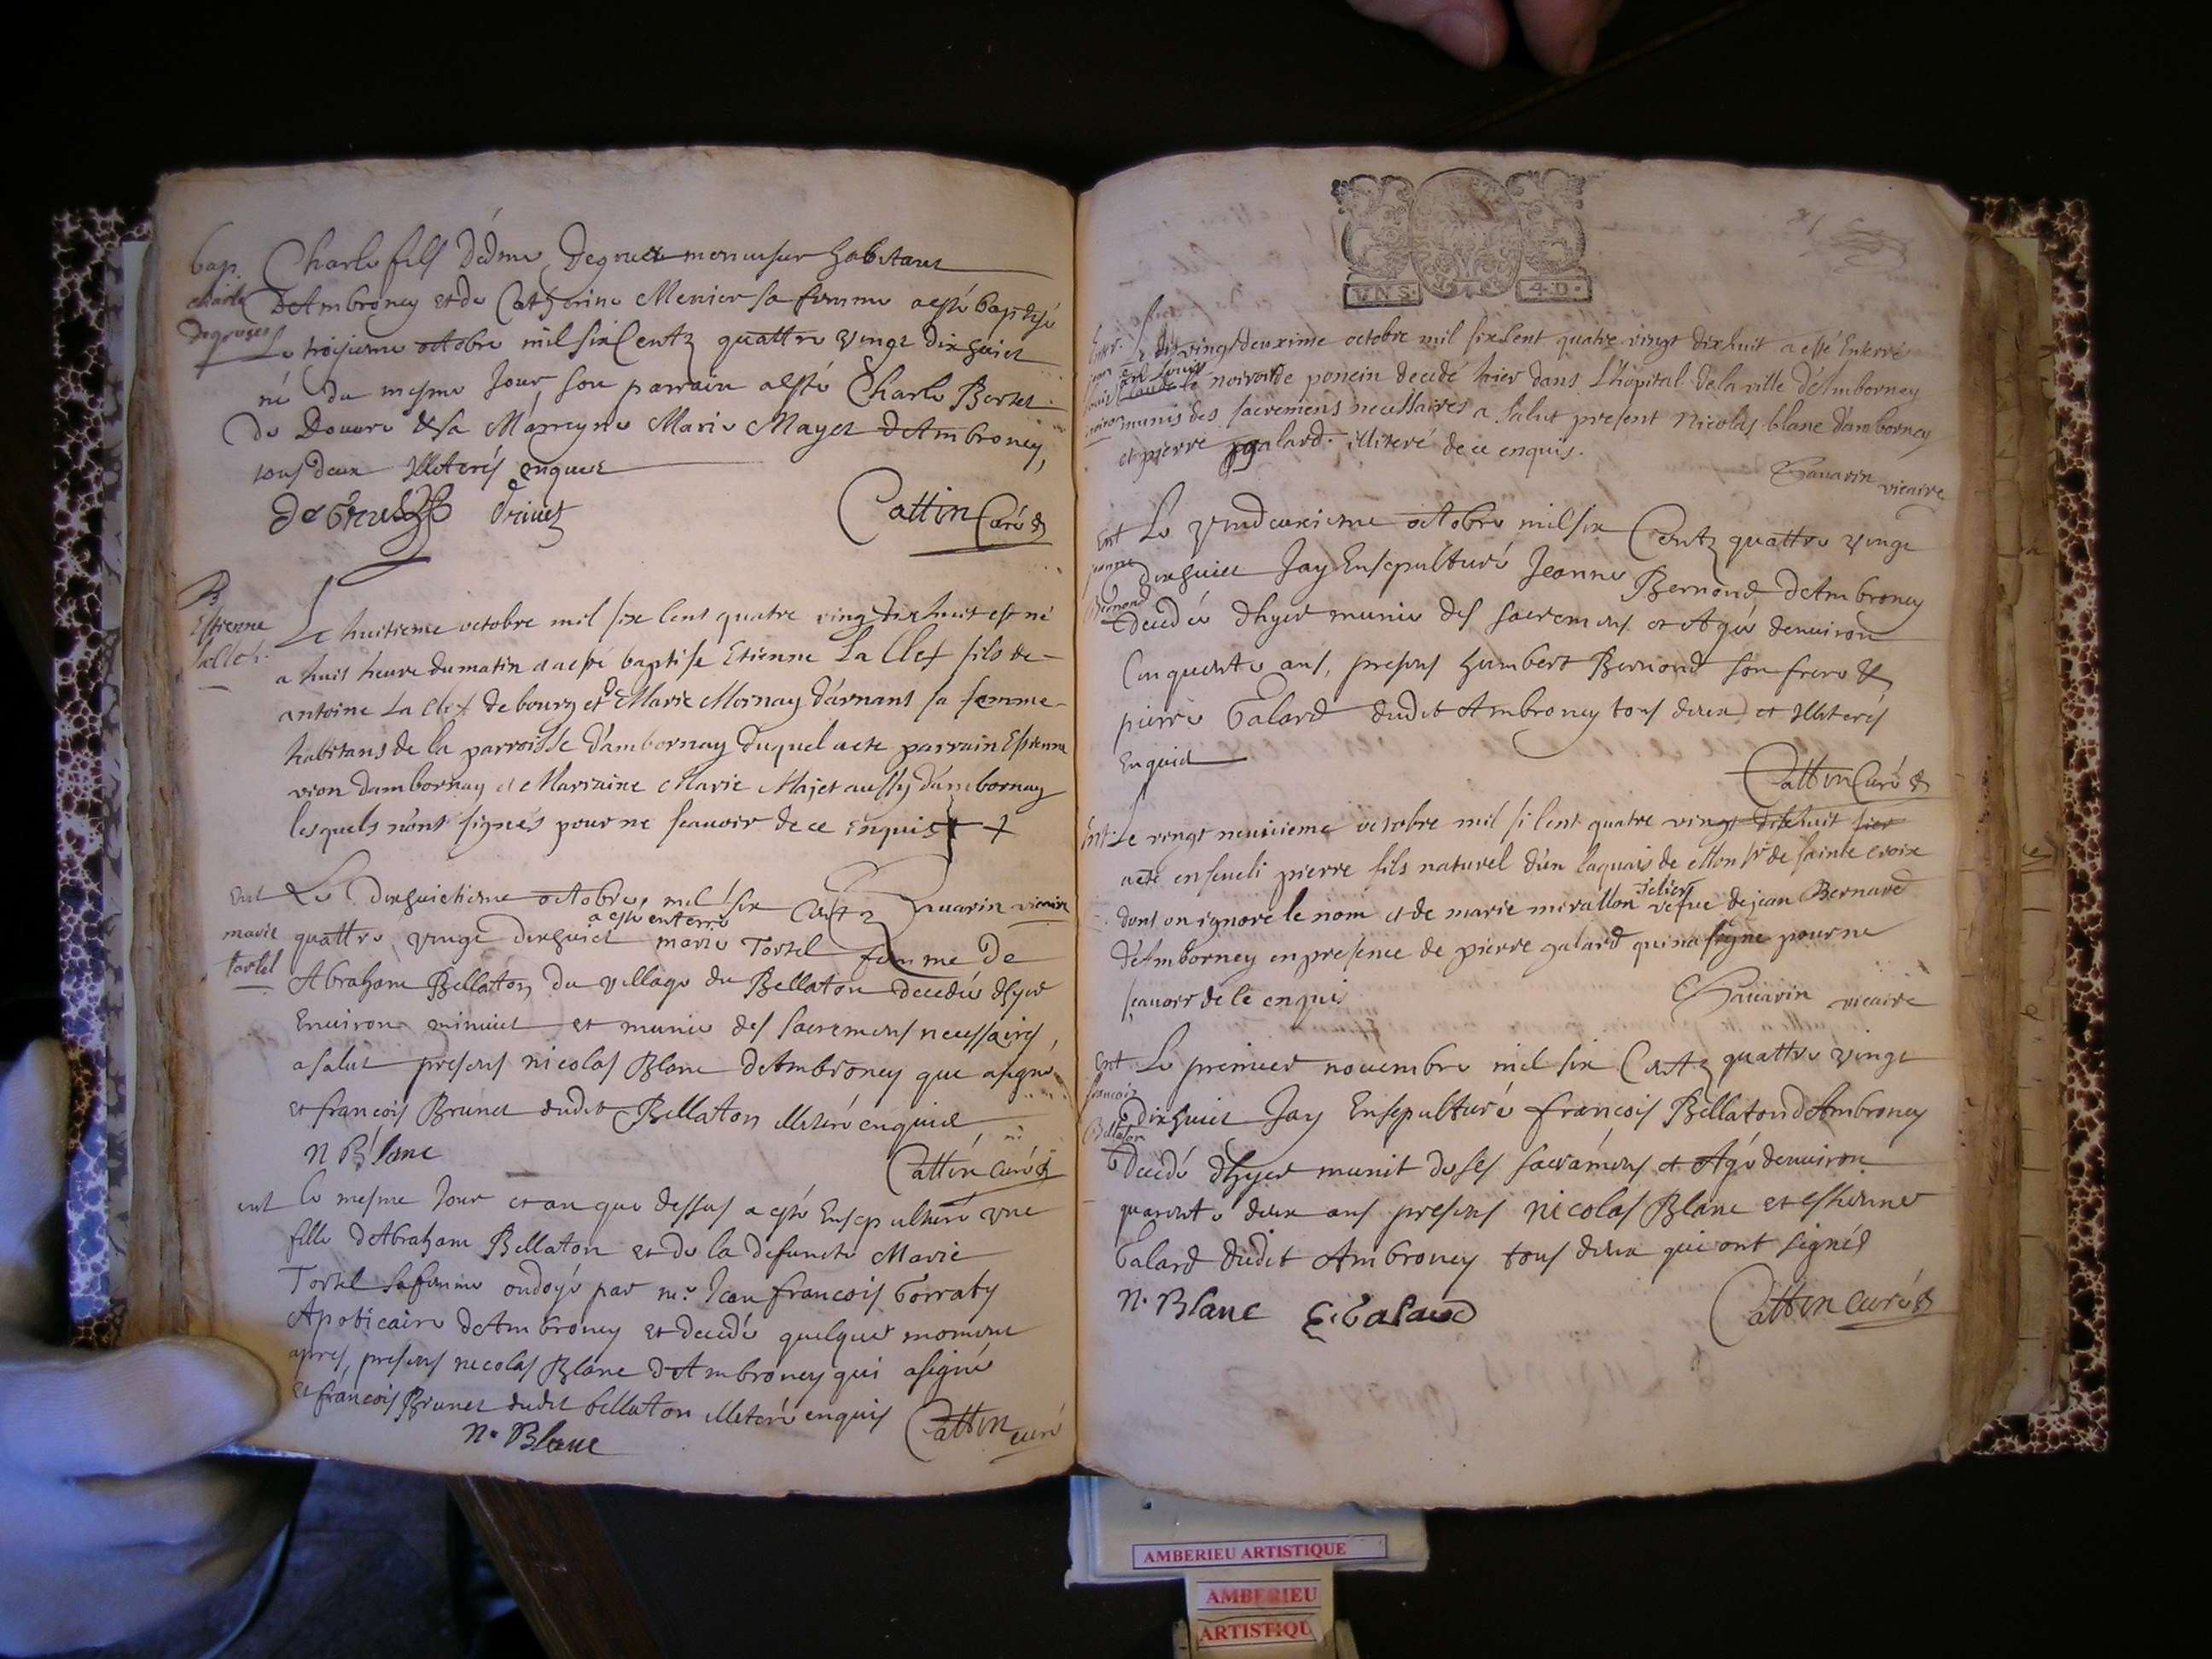 bap.
charle
degroux
Charle fils dédme degroux menuisier habitant
d'Ambroney et de Catherine Menier sa femme a esté baptisé
le troisieme octobre mil six Centz quattre vingt dixhuict
né du mesme Jour, son parrain a esté Charle Bertet
de Douure & sa Marreyne Marie Mayet d'Ambroney,
tous deux Illiterés enquis
Cattin Curé
B
Estienne
la Clef
Le huitieme octobre mil six Cent quatre vingt dix huit est né
a huit heure du matin a a esté baptise Etienne La Clef fils de
antoine La Clef de bourg et Marie Mornay d'arnans sa femme
habitans de la parroisse d'ambornay duquel a ete parrain Estienne
vion dambornay et Marraine Marie Majet aussy d'ambornay
lesquels n'ont signés pour ne scauoir de ce enquis
Sauarin vicaire
Ent
marie
tortel
Le dixhuictieme octobre, mil six Centz
quattre vingt dixhuict a esté enterré marie Tortel femme De
Abraham Bellaton du village du Bellaton decedée d'hyer
Enuiron minuict et munie des sacremens necessaires,
a salut presens nicolas Blanc d'Ambroney que a signé
et francois Brunet dudit Bellaton illiteré enquis
n Blanc
Cattin curé
ent
le mesme Jour et an que dessus a esté Ensepulturé vne
fille d'Abraham Bellaton et de la defuncte Marie
Tortel sa femme ondoyé par mr. Jean francois Gorraty
Apoticaire d'Ambroney et decedé quelques moment
apres, presens nicolas Blanc d'Ambroney qui a signé
et francois Brunet dudit bellaton illiteré enquis
n. Blanc
Cattin curé
VN S. 4 D.
Le vingtdeuxime octobre mil six Cent quatre vingt dix huit a esté Enterré
noiron de poncin decedé hier dans L'hôpital de la ville d'Amborney
munis des sacremens necessaires a salut present Nicolas blanc d'amborney
et pierre galard illiteré de ce enquis.
Sauarin vicaire
Ent
jeanne
Bernond
Le vindeuxieme octobre mil six Centz quattre vingt
dixhuict Jay Ensepulturé Jeanne Bernond d'Ambroney
decedée d'hyer munie des sacremens et Agée denuiron
Cinquante ans, presens humbert Bernond son frere &
pierre Galard dudit Ambroney tous deux et Illiterés
Enquist
Cattin Curé
Ent
Le vingt neuuieme octobre mil si Cent quatre vingt dixhuit
a eté enseueli pierre fils naturel d'un laquais de Mon sr. de sainte croix
dont on ignore le nom et de marie mirallon vefue de jean Bernard
d'Amborney en presence de pierre galard qui na signe pour ne
scauoir de ce enquis
Sauarin vicaire
Ent
francois
Bellaton
Le premier nouembre mil six Centz quattre vingt
dixhuict Jay Ensepulturé francois Bellaton d'Ambroney
decedé d'hyer munit de ses sacrámens et Agé denuiron
quarante deux ans presens nicolas Blanc et estienne
Galard dudit Ambroney tous deux qui ont signés
n. Blanc
E. Galard
Cattin curé
AMBERIEU ARTISTIQUE
AMBERIEU
ARTISTIQU